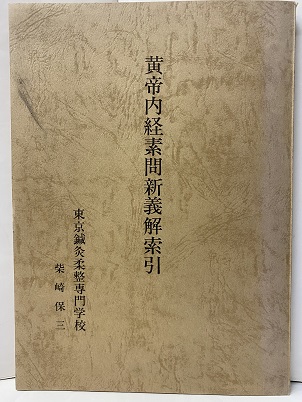 黄帝内経素問新義解索引
東京鍼灸柔整専門学校
柴崎保三